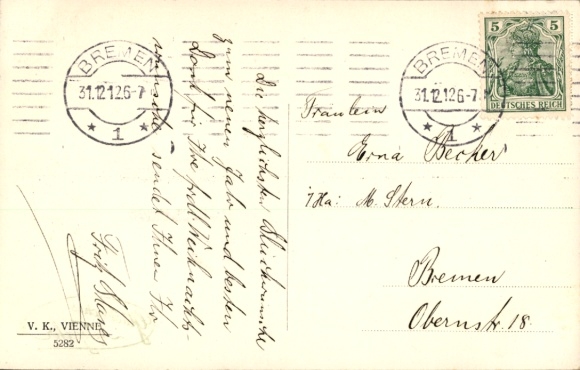 BREMEN
31.12.12 6-7 N.
* 1 *
BREMEN
31.12.12 6-7 N.
* 1 *
5 5
DEUTSCHES REICH
Die herzlichsten Glückwünsche
zum neuen Jahr und besten
Dank für Ihre frdl Weihnachts-
wünsche sendet Ihnen Ihr
Fritz
Fräulein
Erna Becker
M. Stern.
Bremen
Obernstr. 18.
V. K., VIENNE
5282